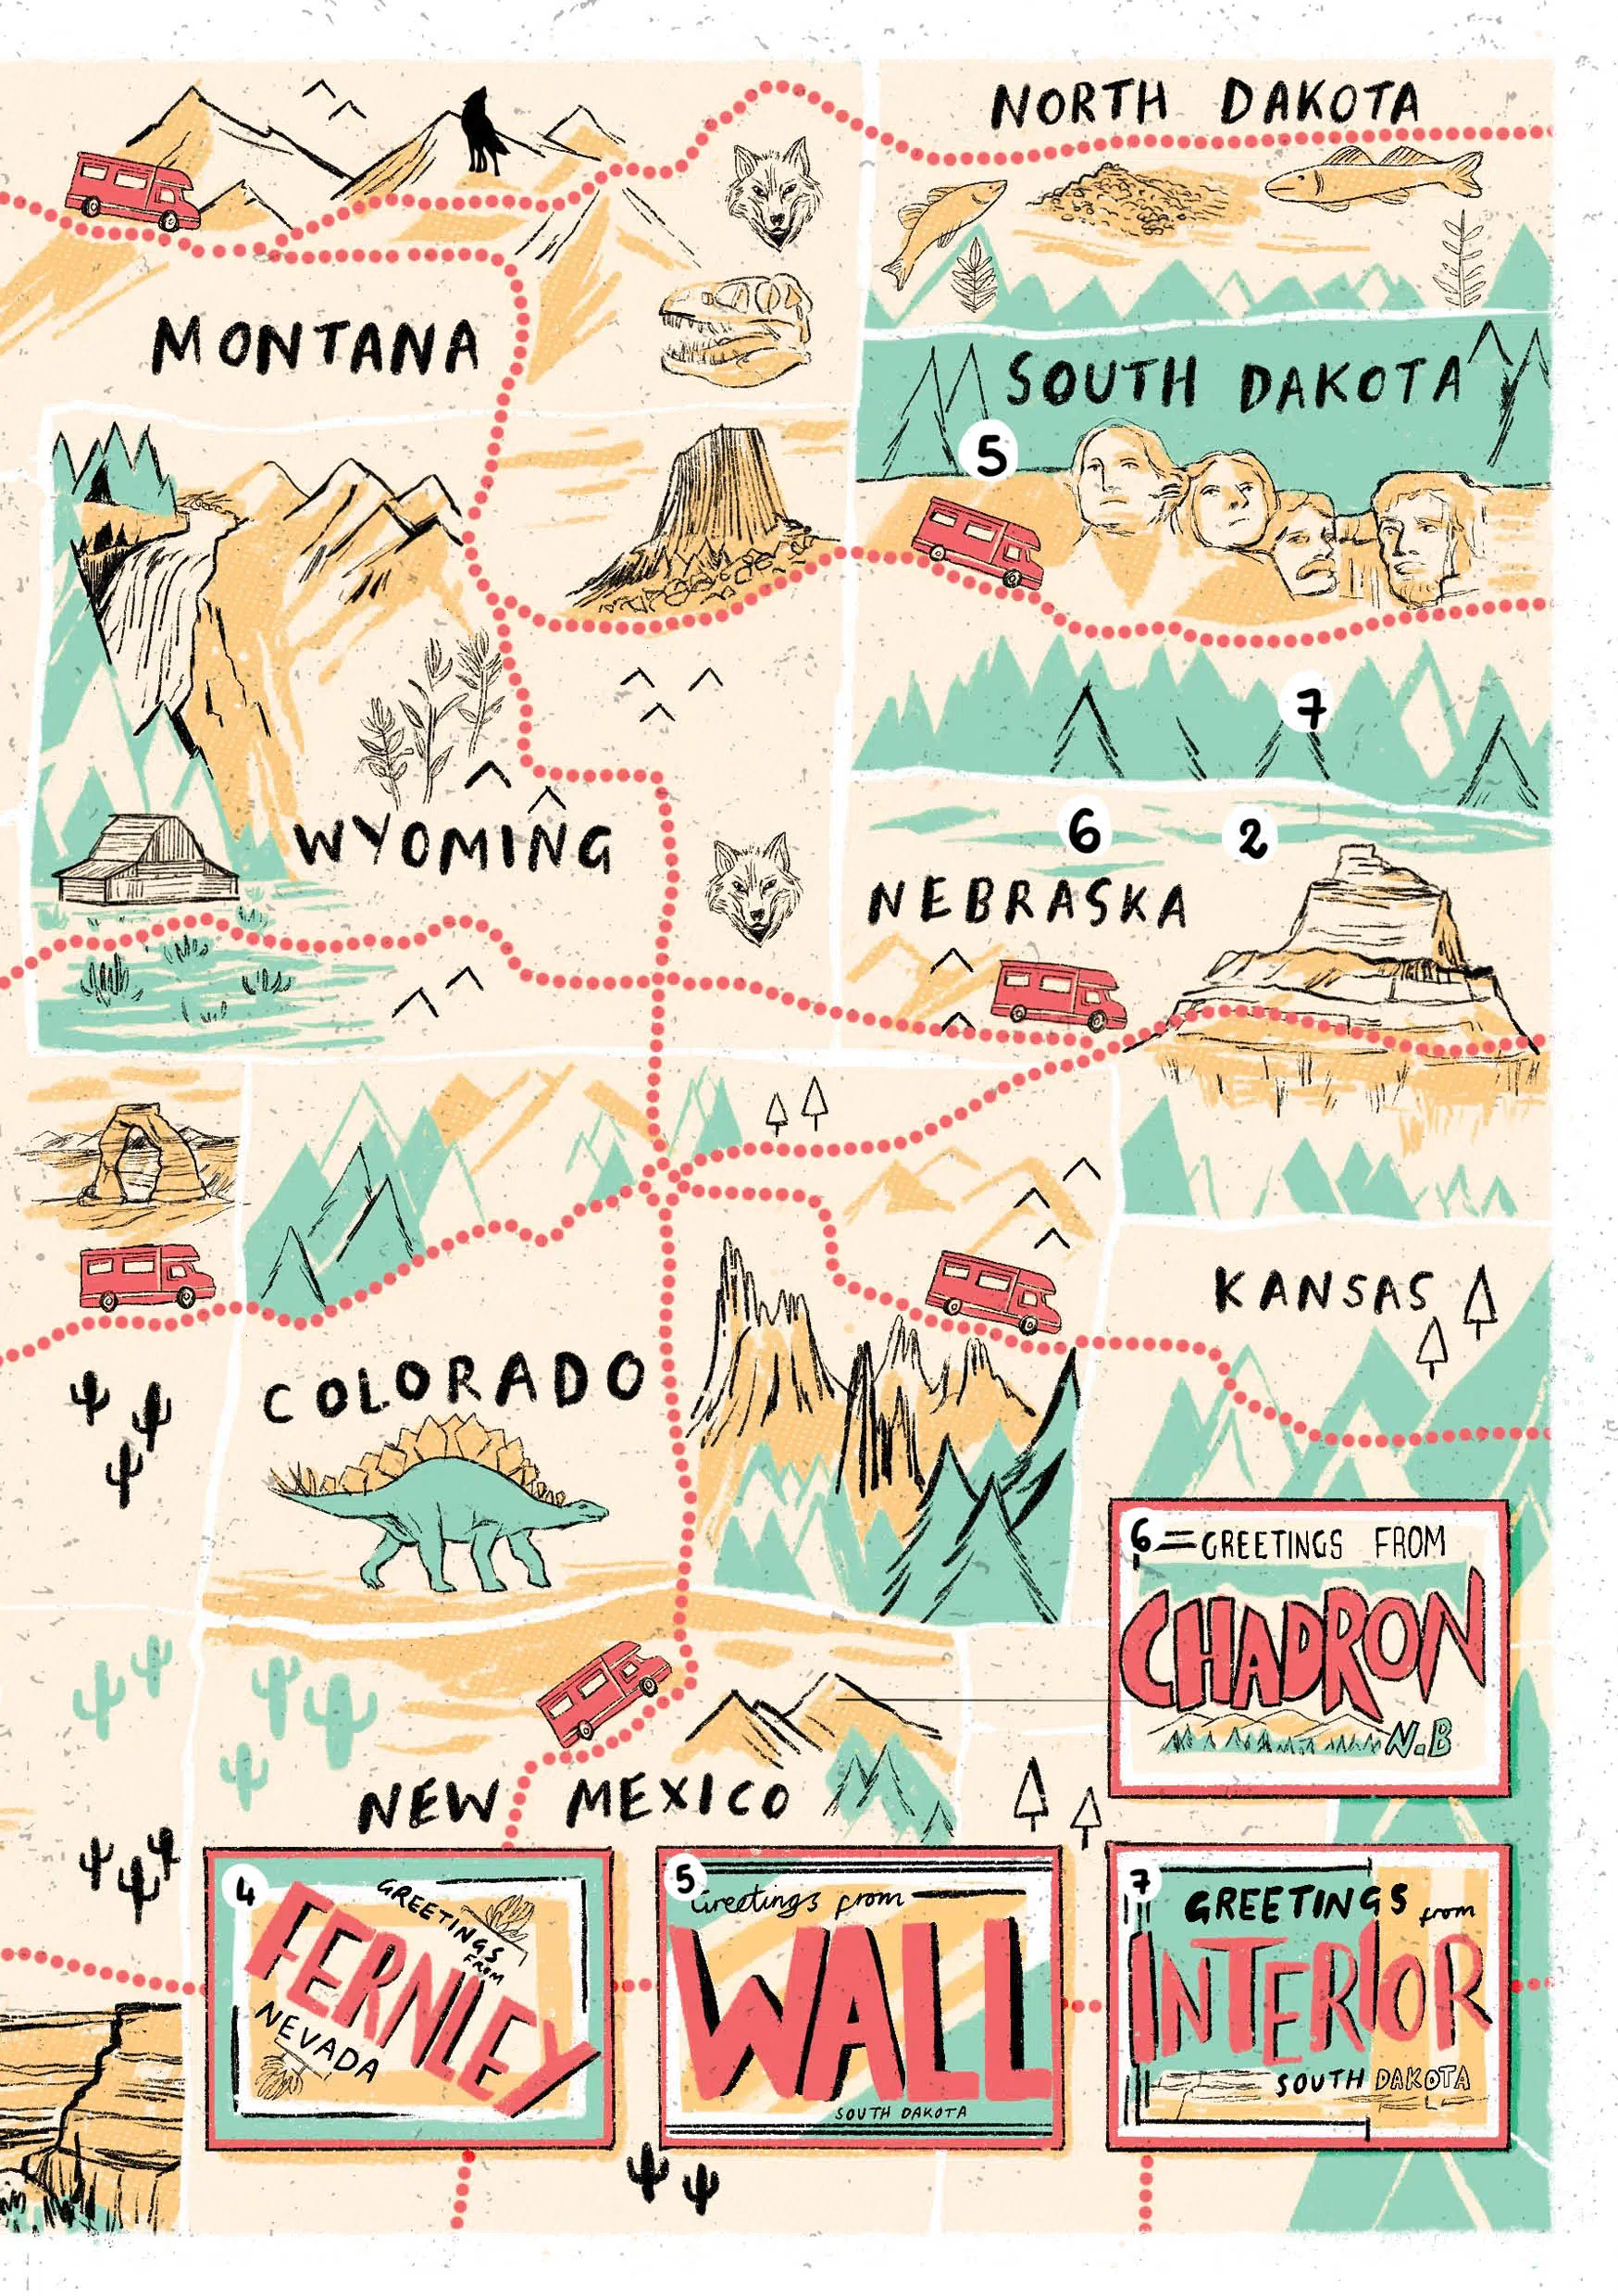 NORTH DAKOTA
MONTANA
SOUTH DAKOTA
5
7
WYOMING
6
2
NEBRASKA
KANSAS
COLORADO
6 = GREETINGS FROM
CHADRON
N.B
NEW MEXICO
4
GREETINGS
FROM
FERNLEY
NEVADA
5
Greetings from
WALL
SOUTH DAKOTA
7
GREETINGS from
INTERIOR
SOUTH DAKOTA